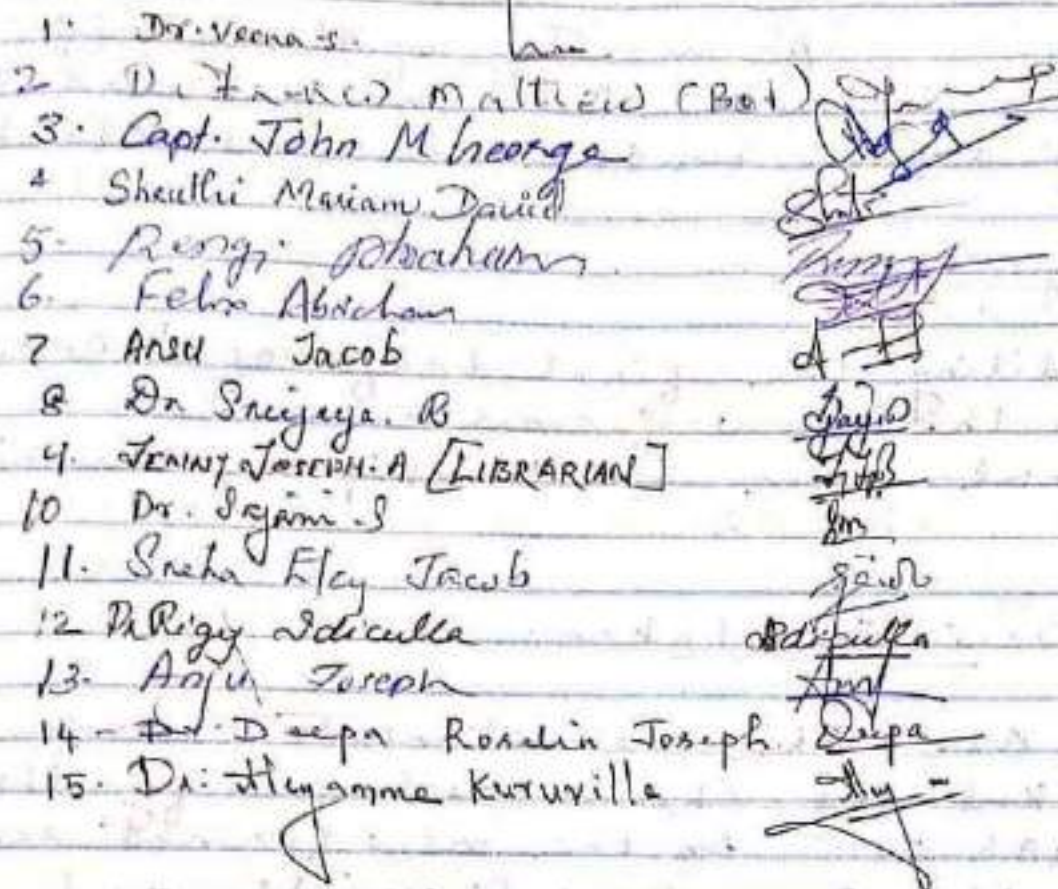 1. Dr. Veena S.
2 Dr. Mathew (Bot)
3. Capt. John M George
4 Sheuthi Mariam David
5. Rengi Abraham
6. Felix Abraham
7 Ansu Jacob
8 Dr Sreejaya. R
9. JENNY JOSEPH. A [LIBRARIAN]
10 Dr. Sajani. S
11. Sneha Elcy Jacob
12 Dr Rigy Idiculla Idiculla
13. Anju Joseph
14 - Dr. Deepa Roselin Joseph Deepa
15. Dr. Kuruvilla